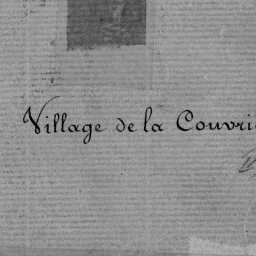 Village de la Couvri